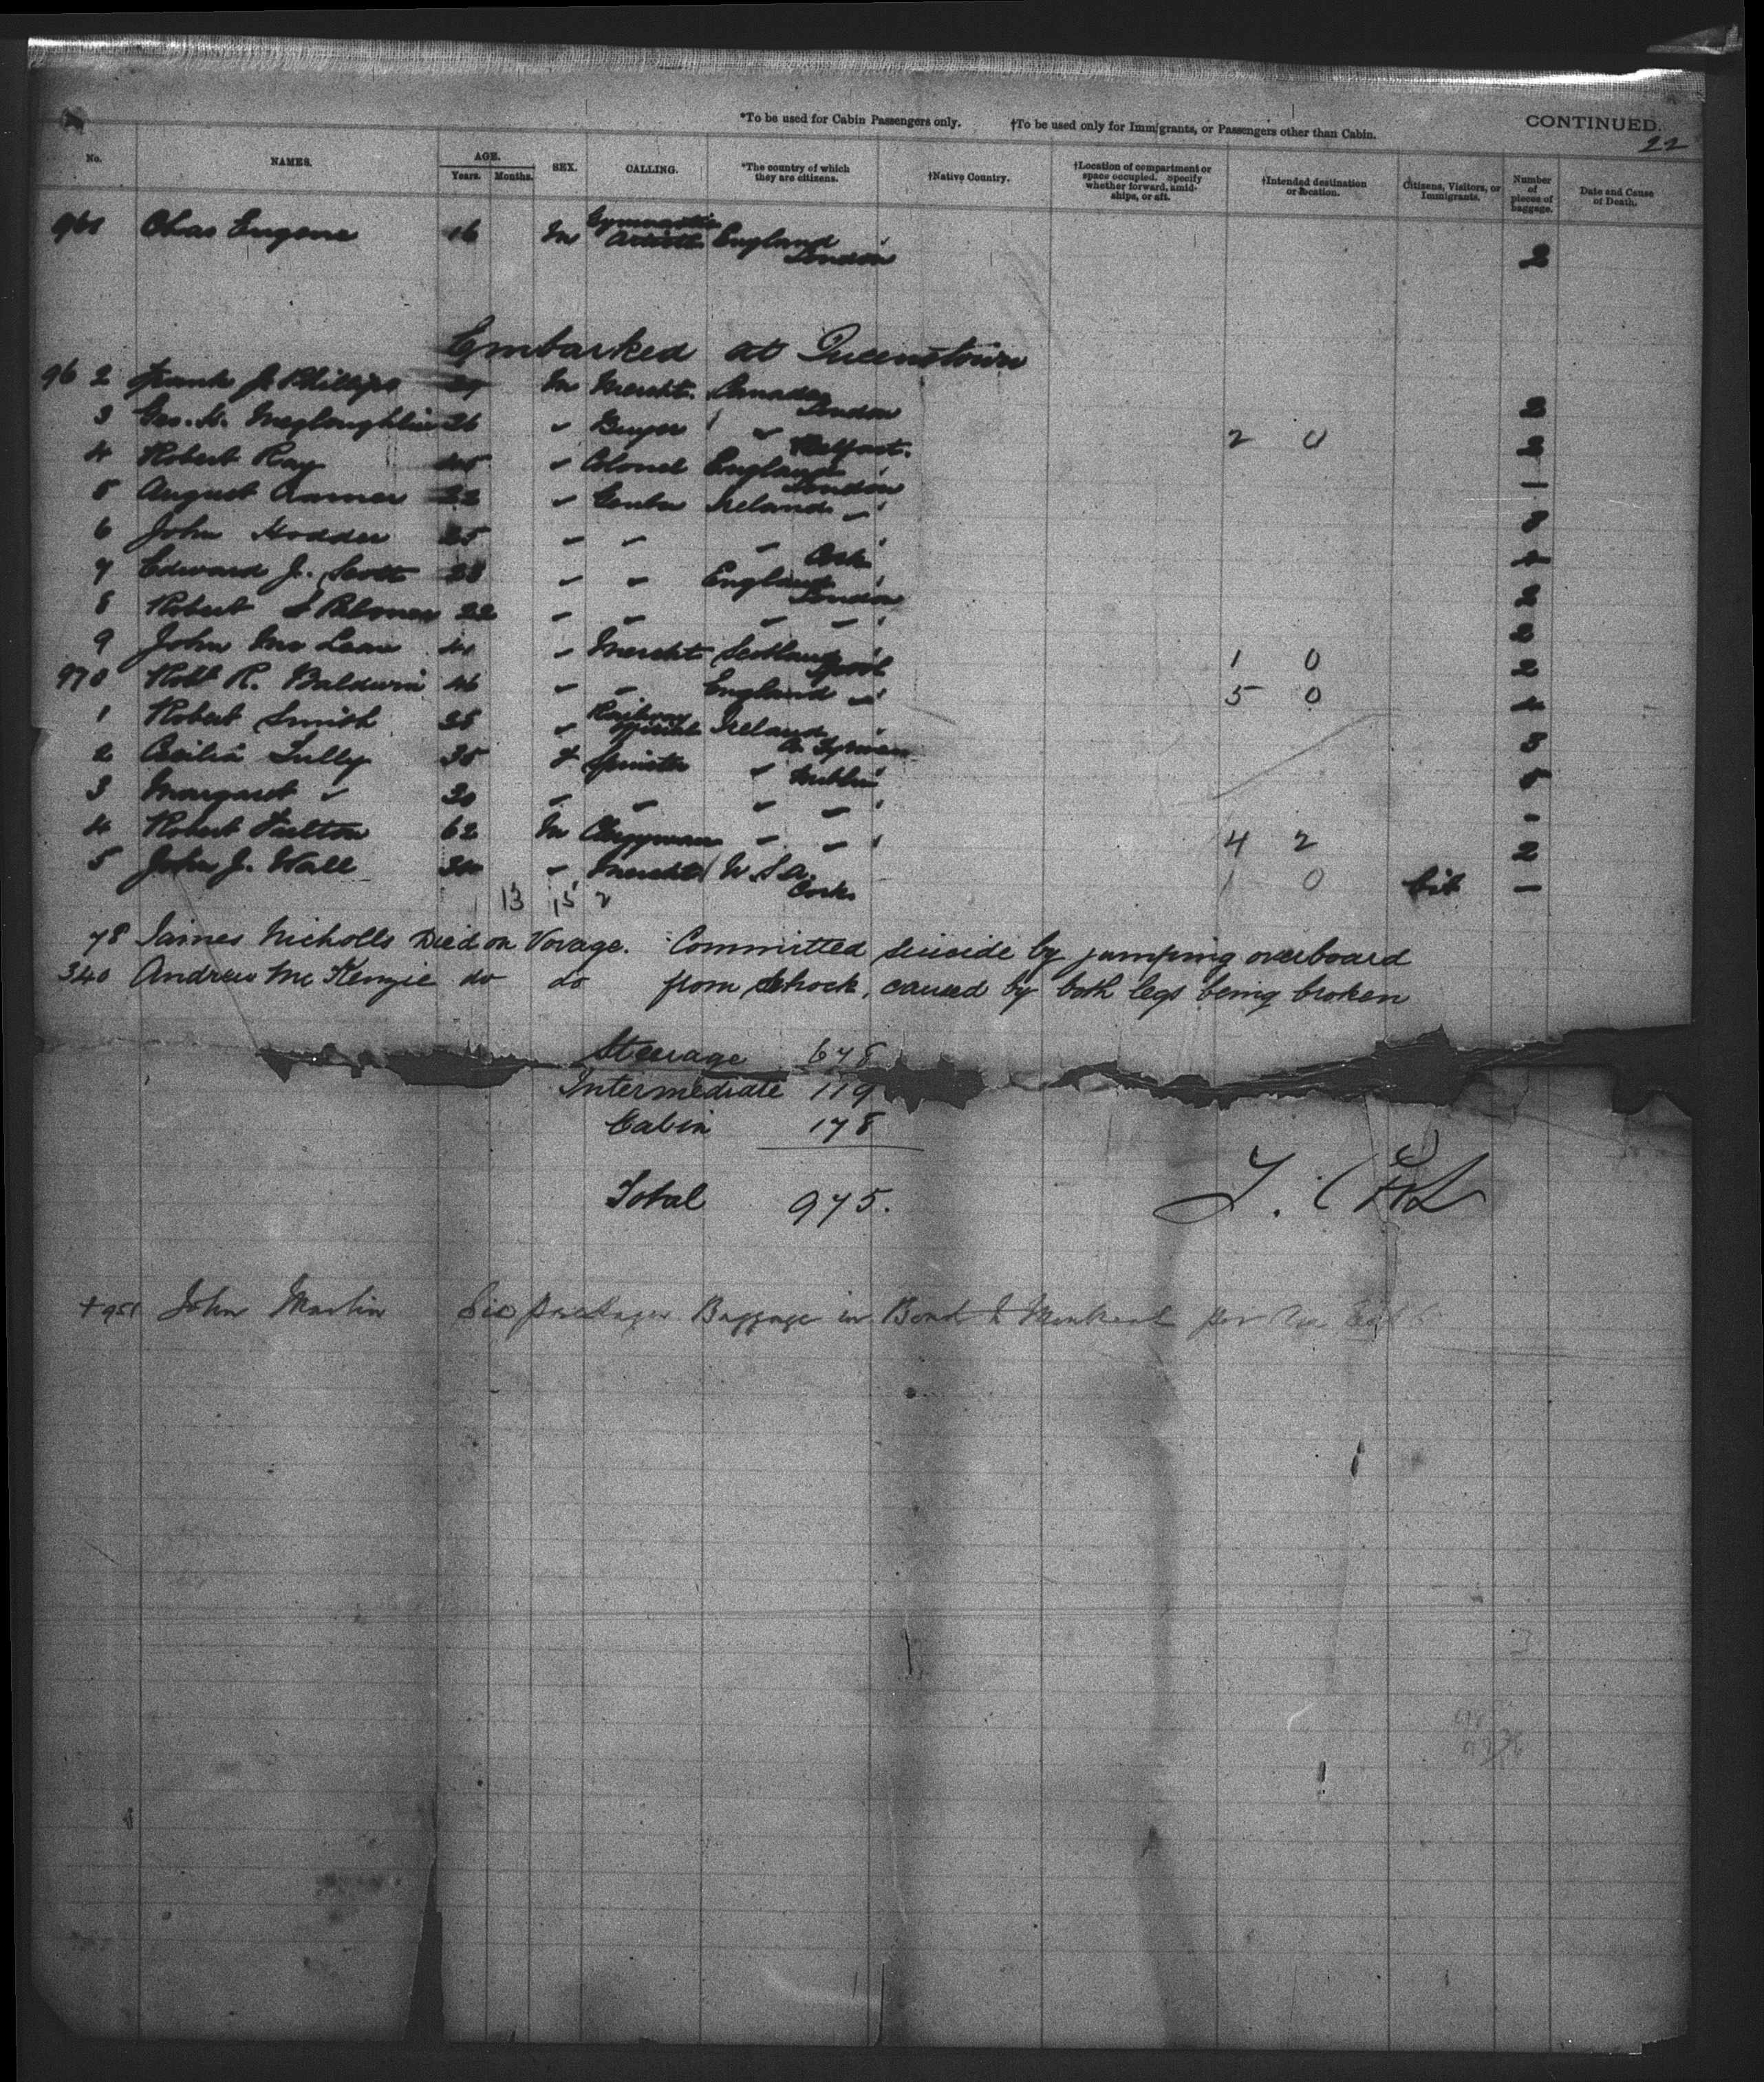 *To be used for Cabin Passengers only. †To be used only for Immigrants, or Passengers other than Cabin. CONTINUED.
22
No. NAMES. AGE. Years. Months. SEX. CALLING. *The country of which they are citizens. †Native Country. †Location of compartment or space occupied. Specify whether forward, amidships, or aft. †Intended destination or location. Citizens, Visitors, or Immigrants. Number of pieces of baggage. Date and Cause of Death.
961 Chas Eugene 16 M Gymnastic Artiste England London 2
Embarked at Queenstown
962 Frank J. Phillips M Mercht. Canada London 2
3 Geo. H. Megloughlin 26 " Buyer " Belfast. 2 0 2
4 Robert Ray 45 " Colonel England London —
5 August 22 " Gentn Ireland "
6 John Hodder 25 " " " Cork
7 Edward J. Scott 28 " " England London 2
8 Robert 22 " " " " 2
9 John Mc Lean " Mercht Scotland 1 0 2
970 Robt R. Baldwin 46 " " England " 5 0 4
1 Robert Smith 25 " Railway Official Ireland 3
2 Cecilia Tully 35 F Spinster " Dublin 5
3 Margaret " 30 " " " " -
4 Robert Fulton 62 M Clergyman " " 4 2 2
5 John J. Wall " Mercht U.S.A. Cork 1 0 Cit —
13 15 2
78 James Nicholls Died on Voyage. Committed suicide by jumping overboard
340 Andrew Mc Kenzie do do from shock, caused by both legs being broken
Steerage 678
Intermediate 119
Cabin 178
Total 975.
+951 John Martin Six packages Baggage in Bond to Montreal per